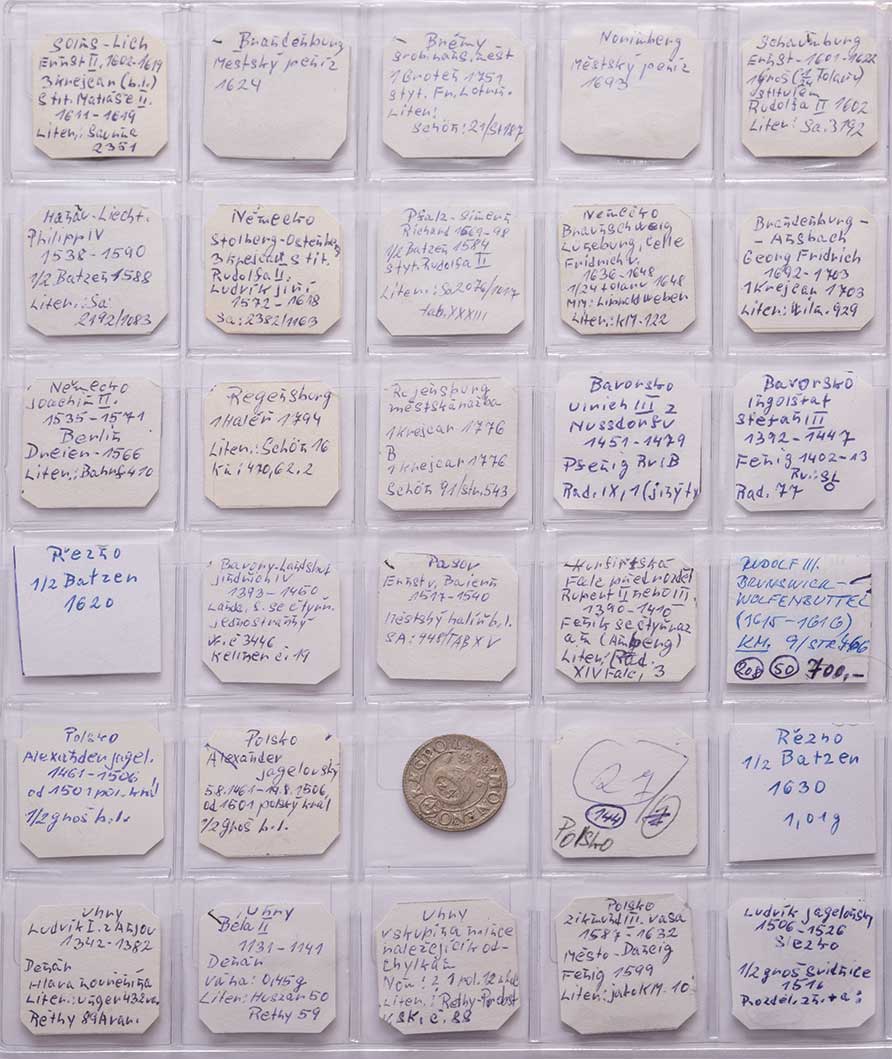 Solms-Lich
Ernst II, 1602-1619
3 krejcar (b.l.)
s tit. Matiáše II.
1611-1619
Liter.: Saurma
2351
Brandenburg
Městský peníz
1624
Brémy
1 Groten 1751
styt. Fr. Lotrin.
Liter:
Schön: 21/St187
Norimberg
Městský peníz
1693
Schaumburg
Ernst-1601-1622
1 groš (1/24 Tolaru)
s titulem
Rudolfa II 1602
Liter: Sa.3192
Hanau-Liecht.
Philipp IV
1538-1590
1/2 Batzen 1588
Liter.: Sa:
2192/1083
Německo
Stolberg-Ostenberg
3 krejcar s tit.
Rudolfa II.
Ludvík jiří
1572-1618
Sa: 2382/1163
Pfalz-Simern
Richard 1569-98
1/2 Batzen 1584
styt. Rudolfa II
Liter.: Sa 2076/1017
tab. XXXIII
Německo
Braunschweig
Lüneburg, Celle
Fridrich V.
1636-1648
1/24 tolaru 1648
MM:
Liter: KM.122
Brandenburg-
-Ansbach
Georg Fridrich
1692-1703
1 krejcar 1703
Liter.: Wilm. 929
Německo
Joachim II.
1535-1571
Berlin
Dreier-1566
Liter: Bahrf 410
Regensburg
1 Haléř 1794
Liter.: Schön 16
Kü: 470, 62.2
Rejensburg
městská ražba
1 krejcar 1776
B
1 krejcar 1776
Schön 91/str.543
Bavorsko
Ulrich III z
Nussdorfu
1451-1479
Pfenig Rv: B
Rad. IX, 1 (jiný ty
Bavorsko
Ingolštat
Stefan III
1392-1447
Fenig 1402-13
Rv.: St
Rad. 77
Řezno
1/2 Batzen
1620
Bavory-Landshut
jindřich IV
1393-1450
jednostranný
č 3446
Kellner č. 19
Pasov
Ernst v. Baiern
1517-1540
Městský haléř b.l.
SA: 448/TAB XV
Kurfiřtská
Falc před rozděl
Rupert II nebo III.
1390-1410
Fenik se čtyřraz
am (Amberg)
Liter: Rad.
XIV Falc, 3
RUDOLF III.
BRUNSWICK-
WOLFENBUTTEL
(1615-1616)
KM. 9/STR 466
208 50 700,-
Polsko
Alexander jagel.
1461-1506
od 1501 pol. král
1/2 groš b.l.
Polsko
Alexander
jagelovský
5.8.1461-19.8.1506,
od 1501 polský král
1/2 groš b.l.
24
27
144
Polsko
Řezno
1/2 Batzen
1630
1,01g
Uhry
Ludvík I. z Anjou
1342-1382
Denár
Hlava
Liter: Unger 432
Réthy 89A var.
Uhry
Béla II
1131-1141
Denár
váha: 0,45g
Liter: Huszár 50
Rethy 59
Uhry
vskupina mince
náležející k od-
chylkám
Liter.: Rethy-Probst
VSK. č. 88
Polsko
Zikmund III. Vasa
1587-1632
Město-Danzig
Fenig 1599
Liter: jako KM. 10
Ludvík jagelonský
1506-1526
Slezsko
1/2 groš Svidnice
1516